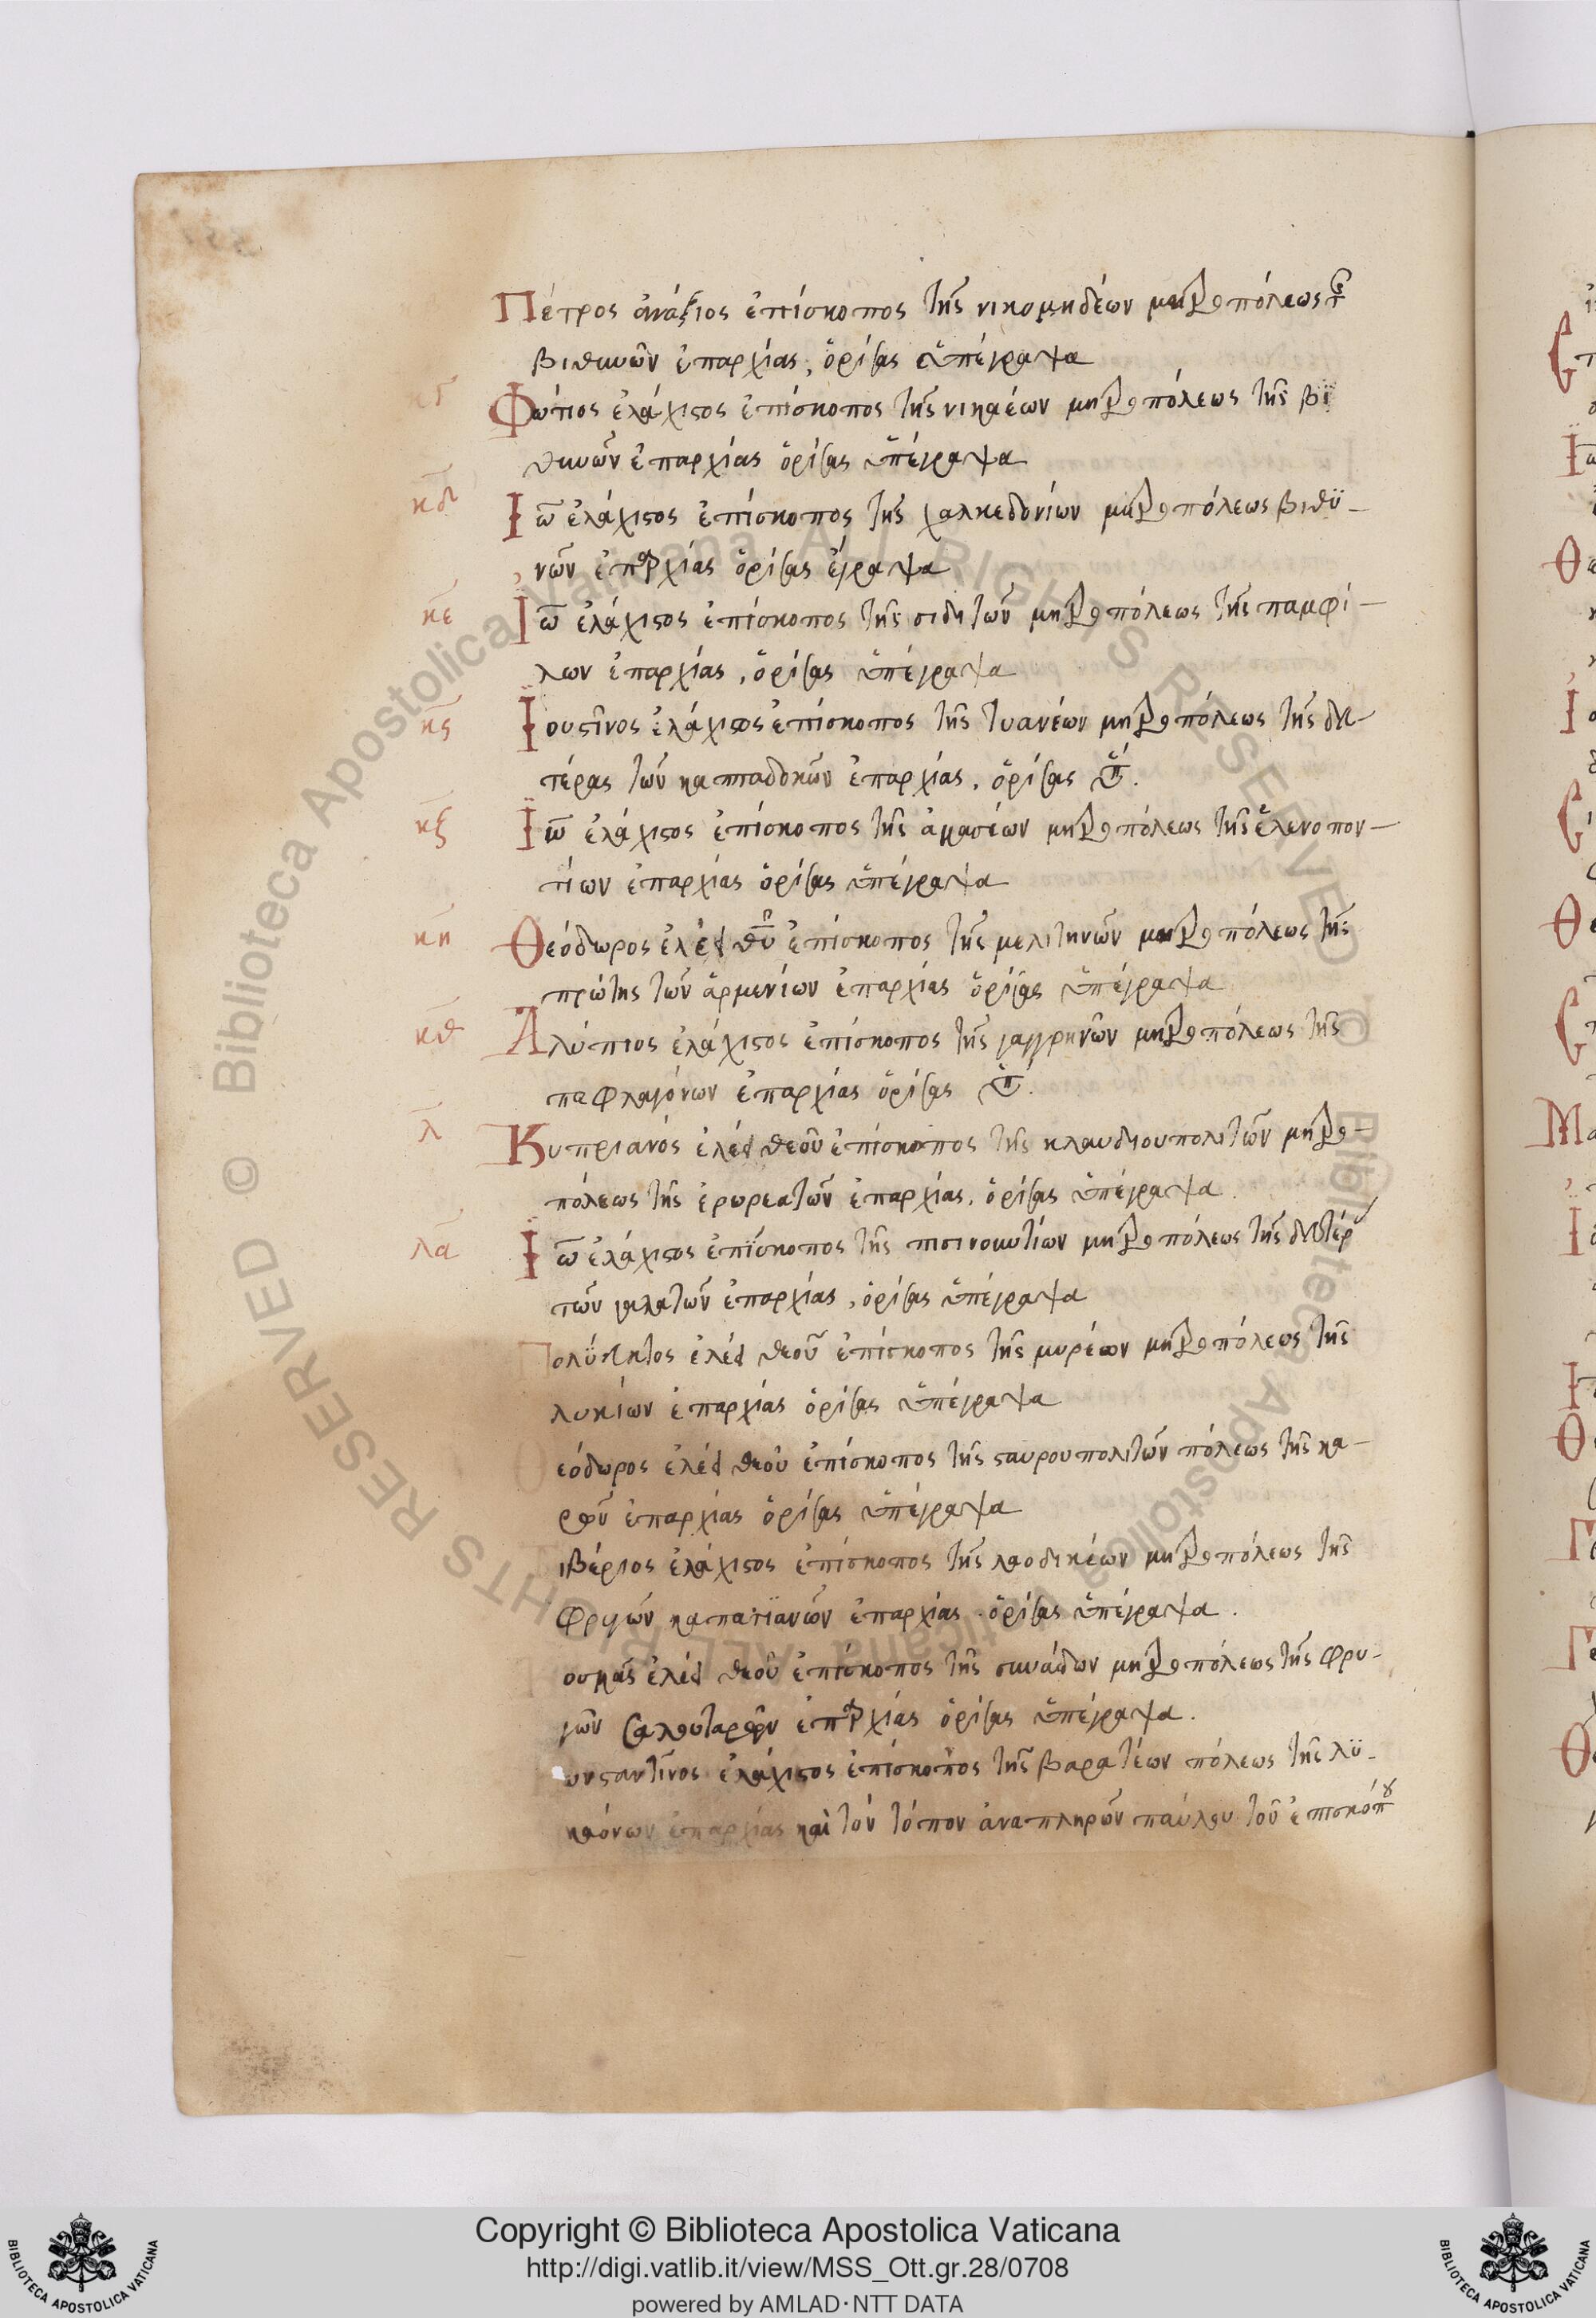 Πέτρος ἀνάξιος ἐπίσκοπος τῆς νικομηδέων μητροπόλεως τ
βιθυνῶν ἐπαρχίας, ὁρίσας ὑπέγραψα
Φώτιος ἐλάχιστος ἐπίσκοπος τῆς νικαέων μητροπόλεως τῆς βϊ
θυνῶν ἐπαρχίας ὁρίσας ὑπέγραψα
κδ Ἰω ἐλάχιστος ἐπίσκοπος τῆς χαλκεδονίων μητροπόλεως βιθϋ-
νῶν ἐπαρχίας ὁρίσας ἔγραψα
κε Ἰω ἐλάχιστος ἐπίσκοπος τῆς σιδητῶν μητροπόλεως τῆς παμφί-
λων ἐπαρχίας, ὁρίσας ὑπέγραψα
κς Ἰουστῖνος ἐλάχιστος ἐπίσκοπος τῆς τυανέων μητροπόλεως τῆς δευ-
τέρας τῶν καππαδοκῶν ἐπαρχίας, ὁρίσας ὑπ.
κζ Ἰω ἐλάχιστος ἐπίσκοπος τῆς ἀμασέων μητροπόλεως τῆς ἑλενοπον-
τίων ἐπαρχίας ὁρίσας ὑπέγραψα
κη Θεόδωρος ἐλέει θυ ἐπίσκοπος τῆς μελιτηνῶν μητροπόλεως τῆς
πρώτης τῶν ἀρμενίων ἐπαρχίας ὁρίσας ὑπέγραψα
κθ Ἀλύπιος ἐλάχιστος ἐπίσκοπος τῆς γαγγρηνῶν μητροπόλεως τῆς
παφλαγόνων ἐπαρχίας ὁρίσας ὑπ.
λ Κυπριανός ἐλέει θεοῦ ἐπίσκοπος τῆς κλαυδιουπολιτῶν μητρο-
πόλεως τῆς ἐρωρεατῶν ἐπαρχίας, ὁρίσας ὑπέγραψα.
λα Ἰω ἐλάχιστος ἐπίσκοπος τῆς πισινουντίων μητροπόλεως τῆς δευτέρ
τῶν γαλατῶν ἐπαρχίας, ὁρίσας ὑπέγραψα
Πολύευκτος ἐλέει θεοῦ ἐπίσκοπος τῆς μυρέων μητροπόλεως τῆς
λυκίων ἐπαρχίας ὁρίσας ὑπέγραψα
Θεόδωρος ἐλέει θεοῦ ἐπίσκοπος τῆς σταυρουπολιτῶν πόλεως τῆς κα-
ρῶν ἐπαρχίας ὁρίσας ὑπέγραψα
ιβέριος ἐλάχιστος ἐπίσκοπος τῆς λαοδικέων μητροπόλεως τῆς
Φρυγῶν καπατϊανῶν ἐπαρχίας. ὁρίσας ὑπέγραψα.
οσμᾶς ἐλέει θεοῦ ἐπίσκοπος τῆς συνάδων μητροπόλεως τῆς φρυ-
γῶν σαλουταρῶν ἐπαρχίας ὁρίσας ὑπέγραψα.
ωνσταντῖνος ἐλάχιστος ἐπίσκοπος τῆς βαρατέων πόλεως τῆς λϋ-
καόνων ἐπαρχίας καὶ τόν τόπον ἀναπληρῶν παύλου τοῦ ἐπισκόπου
Copyright © Biblioteca Apostolica Vaticana
http://digi.vatlib.it/view/MSS_Ott.gr.28/0708
powered by AMLAD·NTT DATA